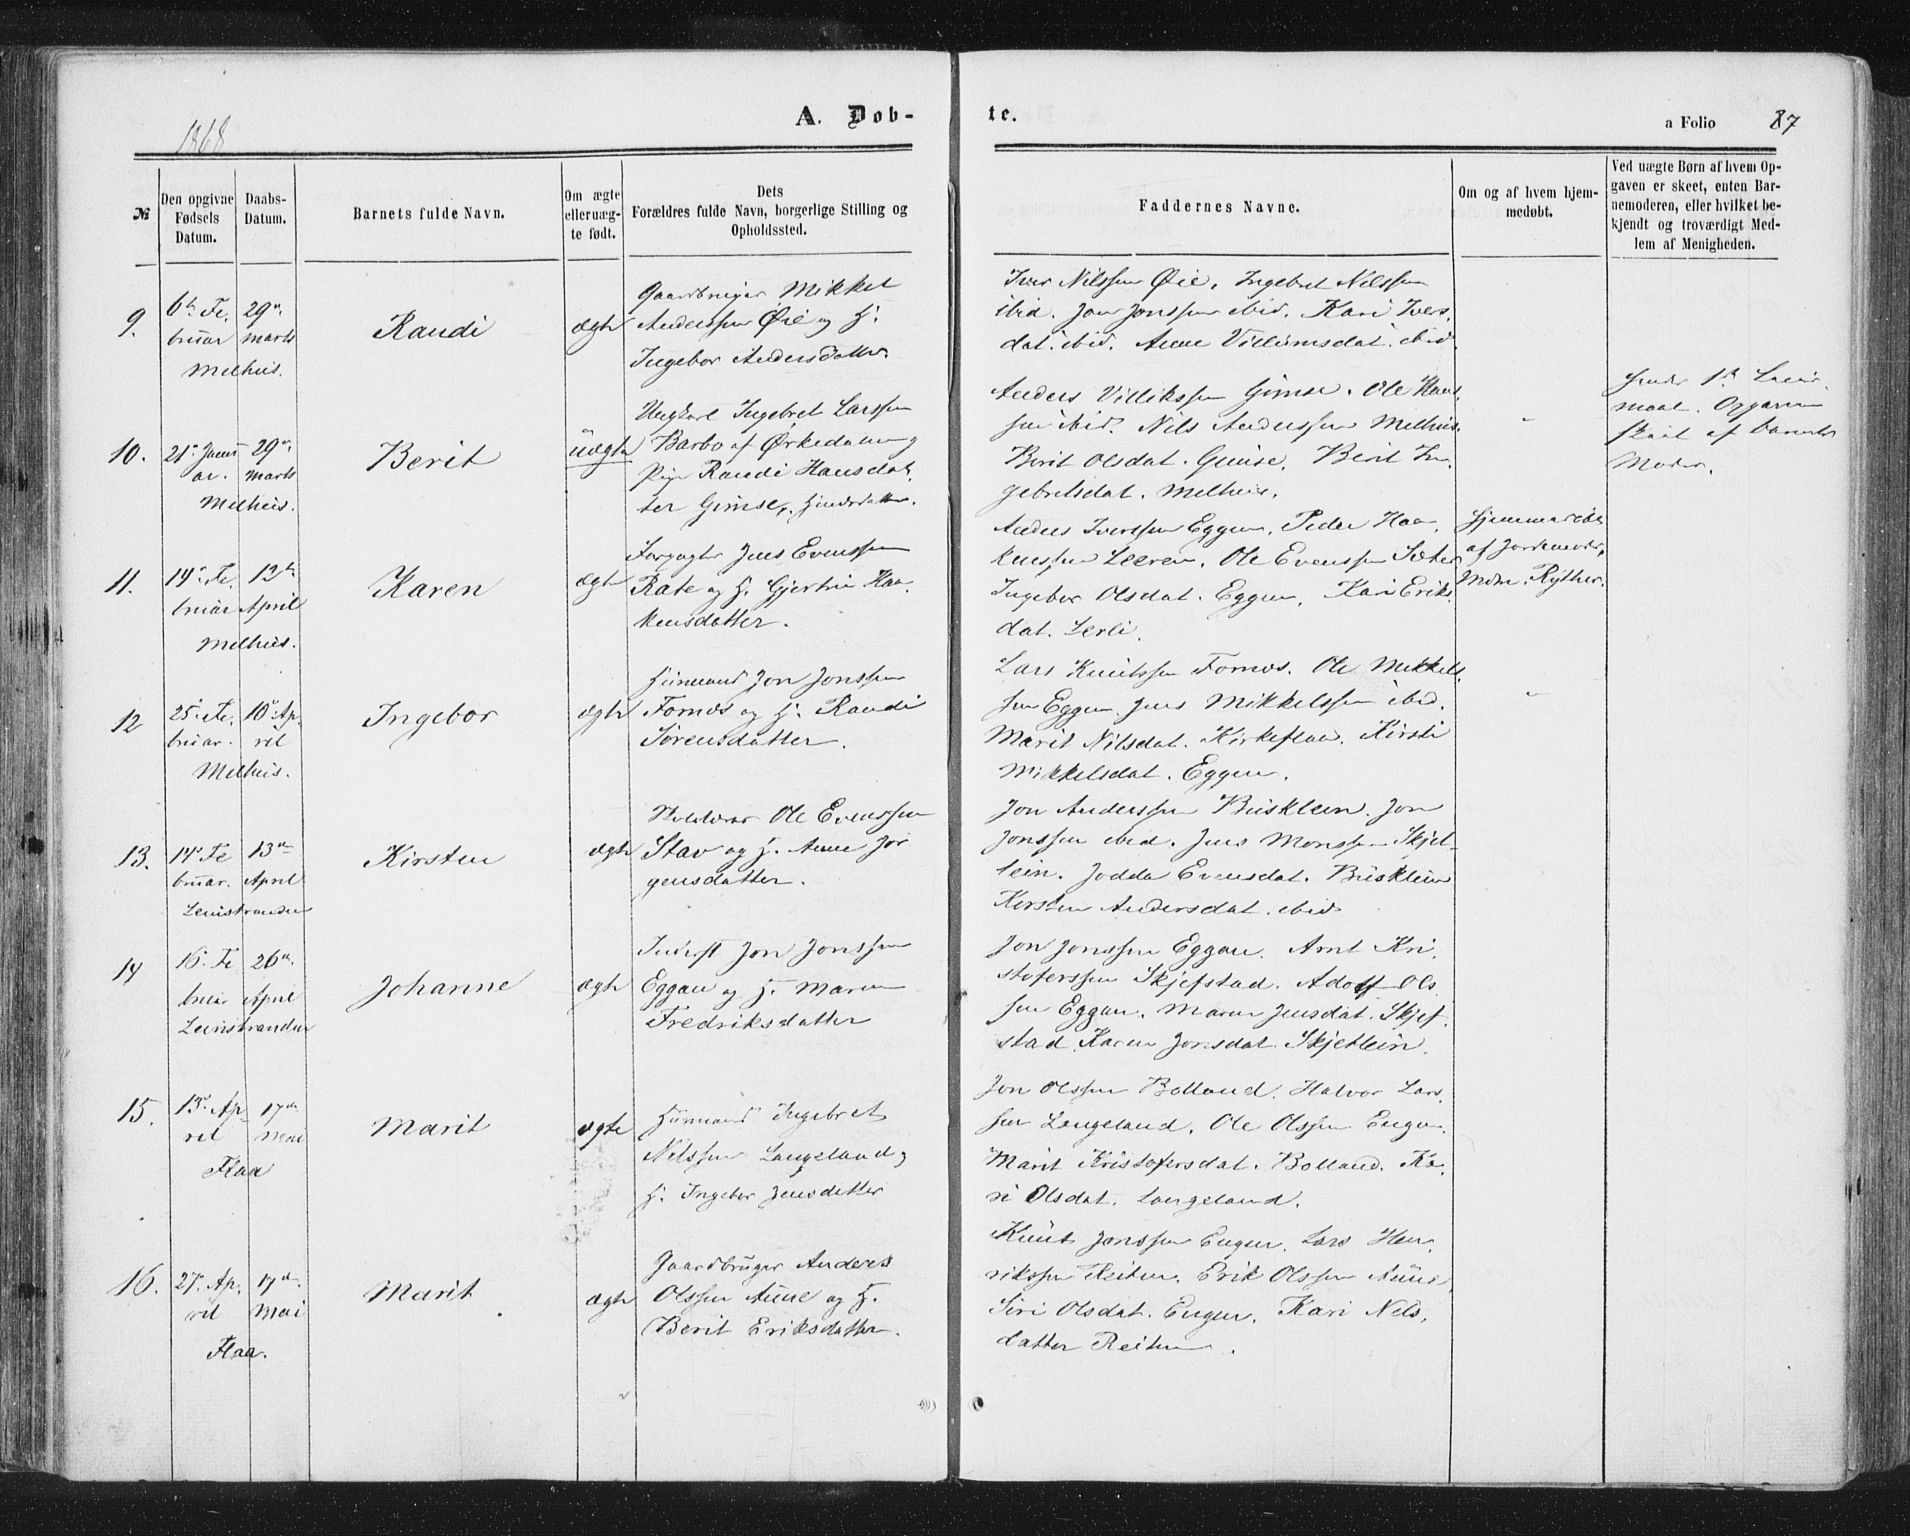 1868
A. Døb-
te.
a Folio 87
№
Den opgivne Fødsels Datum.
Daabs-Datum.
Barnets fulde Navn.
Om ægte eller uæg-te født.
Dets Forældres fulde Navn, borgerlige Stilling og Opholdssted.
Faddernes Navne.
Om og af hvem hjem-medøbt.
Ved uægte Børn af hvem Op-gaven er skeet, enten Bar-nemoderen, eller hvilket be-kjendt og troværdigt Med-lem af Menigheden.
9.
6te Fe-
bruar
29de
marts
Melhus.
Randi
ægte
Gaardbruger Mikkel
Anderssen Øie og H.
Ingebor Andersdatter
Iver Nilssen Øie, Ingebret Nilssen
ibid. Jon Jonssen ibid. Kari Ivers
dat. ibid. Anne Villumsdat. ibid.
10.
21de Janu
ar.
29de
marts
Melhus.
Berit
uægte
Ungkarl Ingebret Larssen
Barbo af Ørkedalen og
Pige Randi Hansdat
ter Gimse,
Anders Villikssen Gimse. Ole Han
sen ibid. Nils Anderssen Melhus.
Berit Olsdat. Gimse. Berit In
gebretsdat. Melhus.
Opgaven
skeet af Barnets
Moder.
11.
14de Fe.
bruar
12te
April
Melhus.
Karen
ægte
Forpagter Jens Evenssen
Rate og H. Gjertru Haa
kensdatter.
Anders Iverssen Eggen, Peder Haa
kenssen Leeren, Ole Evenssen Sæter
Ingebor Olsdat. Eggen, Kari Eriks
dat. Lerli.
Hjemmedøbt
af Jordemoder
Mdm. Rÿther.
12
25de Fe.
bruar.
10de Ap
ril
Melhus.
Ingebor
ægte
Huusmand Jon Jonssen
Fornes og H. Randi
Sørensdatter.
Lars Knutssen Fornes. Ole Mikkels
sen Eggen. Jens Mikkelssen ibid.
Marit Nilsdat. Kirkeflaa. Kirsti
Mikkelsdat. Eggen.
13.
14de Fe
bruar.
13de
April
Leinstranden
Kirsten
ægte
Ole Evenssen
Stav og H. Anne Jør
gensdatter.
Jon Anderssen Busklein. Jon
Jonssen ibid. Jens Monssen Skjet
lein. Jodda Evensdat. Busklein
Kirsten Andersdat. ibid
14
16de Fe
bruar
26de
April
Leinstranden
Johanne
ægte
Inderst Jon Jonssen
Eggan og H. Maren
Fredriksdatter
Jon Jonssen Eggan. Arnt Kri
stoferssen Skjefstad. Adolf Ols
sen Eggan. Maren Jensdat. Skjef
stad. Karen Jonsdat. Skjetlein.
15.
13de Ap
ril
17de
Mai
Flaa
Marit
ægte
Huusmand Ingebret
Nilssen Langeland og
H. Ingebor Jensdatter
Jon Olssen Bolland. Halvor Lars
sen Langeland. Ole Olssen Engen.
Marit Kristofersdat. Bolland. Ka
ri Olsdat. Langeland.
16.
27de Ap.
ril
17de
Mai
Flaa.
Marit
ægte
Gaardbruger Anders
Olssen Aune og H.
Berit Eriksdatter.
Knut Jonssen Engen. Lars Hen
rikssen Reiten. Erik Olssen Aune,
Siri Olsdat. Engen. Kari Nils
datter Reiten.